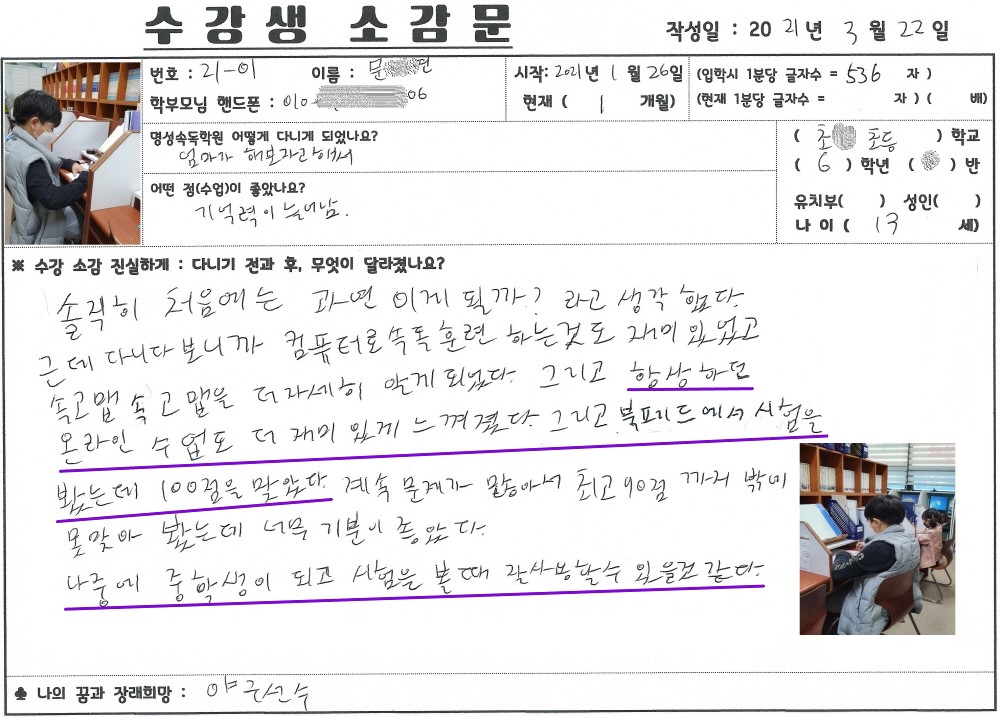 수강생 소감문
작성일 : 2021년 3월 22일
번호 : 21-01 이름 : 문 연
학부모님 핸드폰 : 010- 06
시작: 2021년 1월 26일
현재 ( 1 개월)
(입학시 1분당 글자수 = 536 자 )
(현재 1분당 글자수 = 자 ) ( 배)
명성속독학원 어떻게 다니게 되었나요?
엄마가 해보자라해서
어떤 점(수업)이 좋았나요?
기억력이 늘어남.
( 초 초등 ) 학교
( 6 ) 학년 ( ) 반
유치부( ) 성인( )
나 이 ( 13 세)
※ 수강 소감 진실하게 : 다니기 전과 후, 무엇이 달라졌나요?
솔직히 처음에는 과연 이게 될까? 라고 생각 했다.
근데 다니다 보니까 컴퓨터로 속독훈련 하는것도 재미 있었고
속고맵 속고맵을 더 자세히 알게 되었다. 그리고 항상하던
온라인 수업도 더 재미 있게 느껴졌다. 그리고 북패드에서 시험을
봤는데 100점을 맞았다. 계속 문제가 많아서 최고 90점 까지 밖에
못맞아 봤는데 너무 기분이 좋았다.
나중에 중학생이 되고 시험을 볼 때 잘사용할수 있을것 같다.
♣ 나의 꿈과 장래희망 : 야구선수